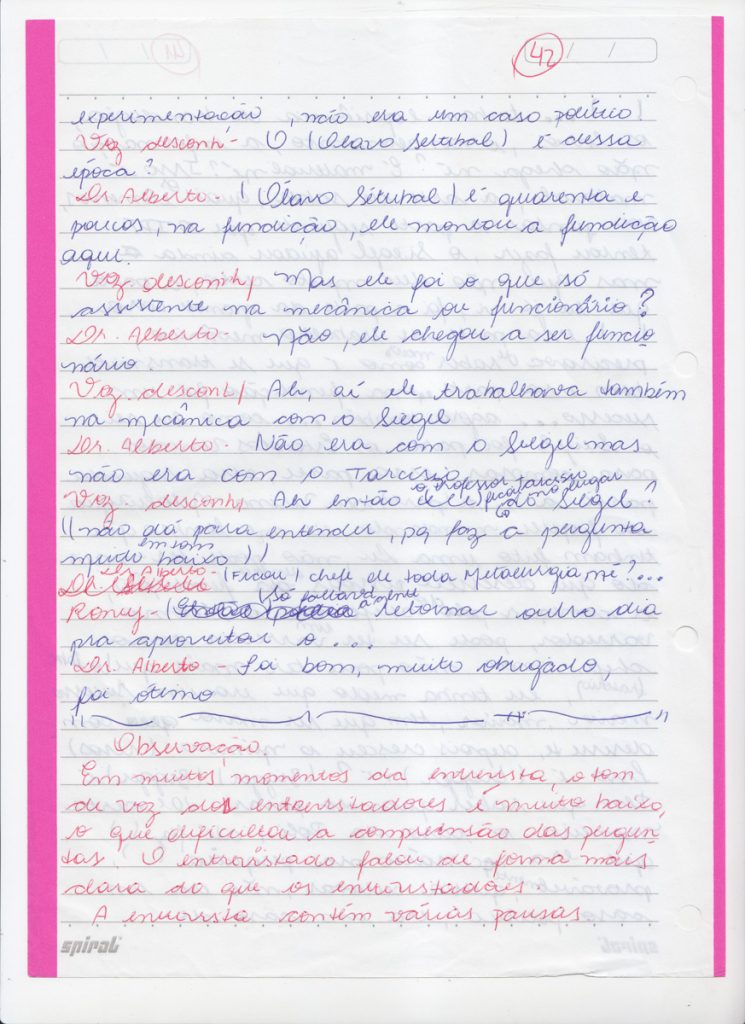 42
experimentação, não era um caso político
Voz desconh - O (Olavo Setubal) é dessa
época?
Dr. Alberto - (Olavo Sétubal) é quarenta e
poucos, na fundição, ele montou a fundição
aqui.
Voz desconh/ Mas ele foi o que só
assistente na mecânica ou funcionário?
Dr. Alberto - Não, ele chegou a ser funcio
nário
Voz desconh/ Ah, aí ele trabalhava também
na mecânica com o Siegel
Dr. Alberto - Não era com o Siegel mas
não era com o Tarcísio
o professor Tarcisio
Voz desconh/ Ah então (ele) ficou no lugar
do Siegel?
((não dá para entender, pq faz a pergunta
em tom
muito baixo))
Dr. Alberto - (Ficou) chefe de toda Metalurgia, né?...
Romey - (só futuramente
retornar outro dia
pra aproveitar o...
Dr. Alberto - Tá bom, muito obrigado,
foi ótimo
Observação
Em muitos momentos da entrevista, o tom
de voz dos entrevistadores é muito baixo,
o que dificultou a compreensão das pergun
tas. O entrevistado falou de forma mais
clara do que os entrevistadores.
A entrevista contém várias pausas
spiral